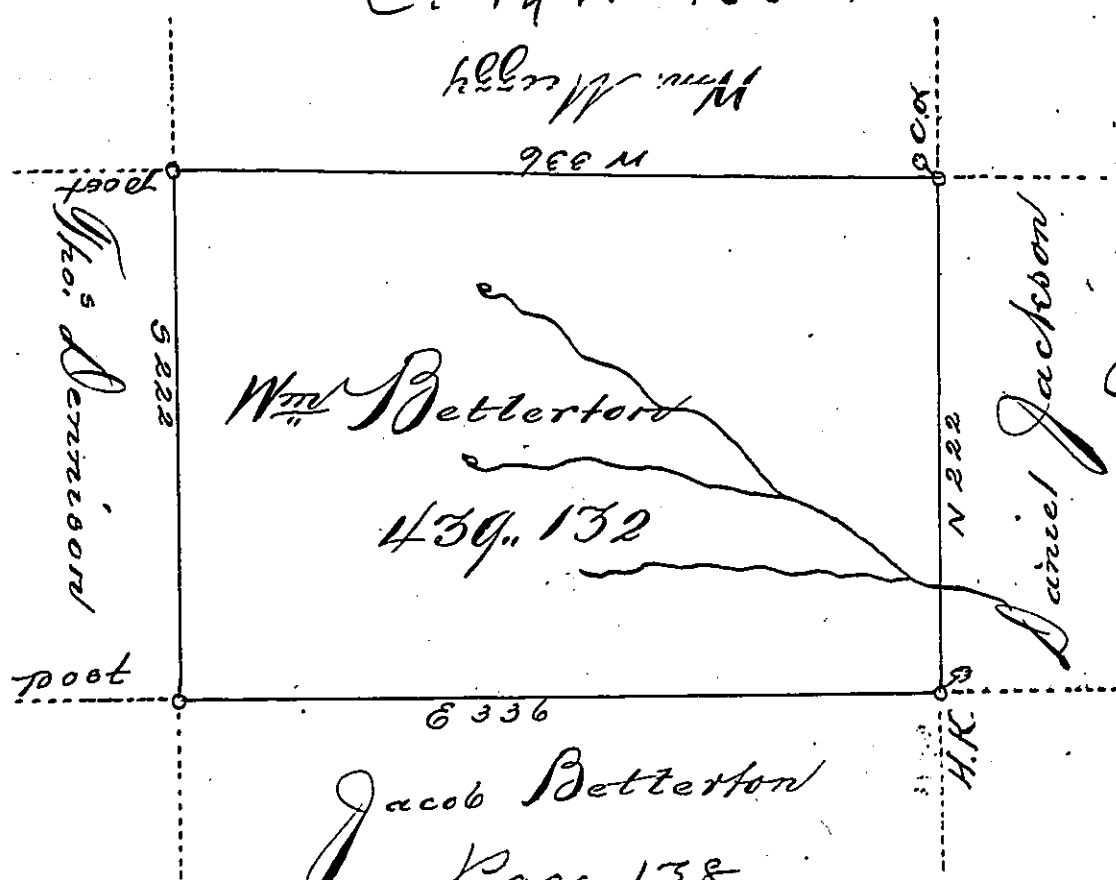 Wm. Muzzy
W 336
post
Tho.s Dennison
S 222
Wm Betterton
439,, 132
N 222
Daniel Jackson
post
E 336
H.K.
Jacob Betterton
Page 138